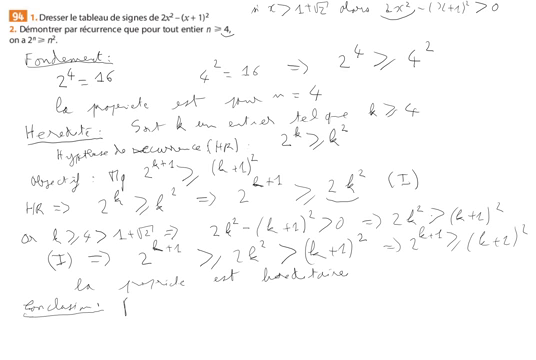 si x > 1+√2 alors 2x² - (x+1)² > 0
94 1. Dresser le tableau de signes de 2x² – (x + 1)²
2. Démontrer par récurrence que pour tout entier n ⩾ 4,
on a 2ⁿ ⩾ n².
Fondement :
2⁴ = 16 4² = 16 => 2⁴ ⩾ 4²
la propriete est pour n = 4
Heredite : Soit k un entier tel que k ⩾ 4
Hypthese de recurrence (HR) : 2ᵏ ⩾ k²
Objectif : Mq 2ᵏ⁺¹ ⩾ (k+1)²
HR => 2ᵏ ⩾ k² => 2ᵏ⁺¹ ⩾ 2k² (I)
or k ⩾ 4 > 1+√2 => 2k² - (k+1)² > 0 => 2k² > (k+1)²
(I) => 2ᵏ⁺¹ ⩾ 2k² > (k+1)² => 2ᵏ⁺¹ ⩾ (k+1)²
la propriete est hereditaire
Conclusion :